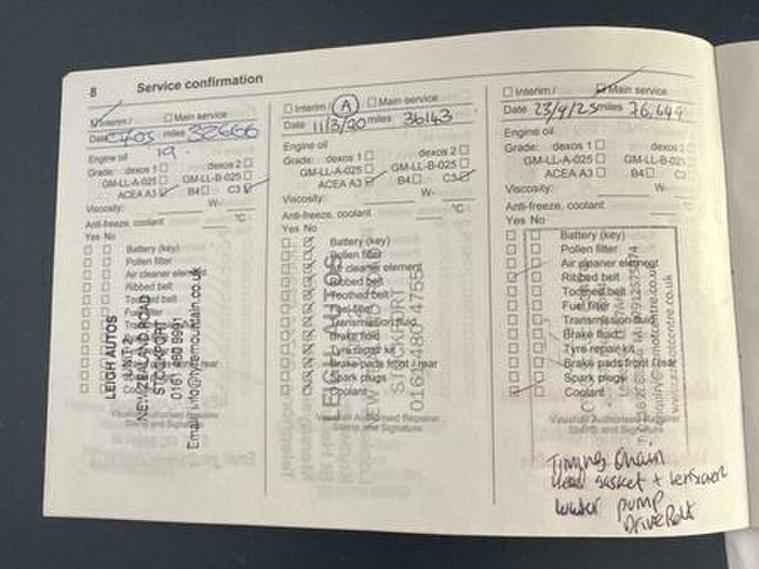 8 Service confirmation
Interim / Main service
miles 32666
19.
Engine oil
Grade: dexos 1 dexos 2
GM-LL-A-025 GM-LL-B-025
ACEA A3 B4 C3
Viscosity: W-
Anti-freeze, coolant °C
Yes No
Battery (key)
Pollen filter
Air cleaner element
Ribbed belt
Toothed belt
Fuel filter
Transmission fluid
Brake fluid
Tyre repair kit
Brake pads front / rear
Spark plugs
Coolant
Vauxhall Authorised Repairer
Stamp and Signature
LEIGH AUTOS
UNIT 2
NEW ZEALAND ROAD
STOCKPORT
0161 480 9991
Interim / A Main service
Date 11/3/20 miles 36143
Engine oil
Grade: dexos 1 dexos 2
GM-LL-A-025 GM-LL-B-025
ACEA A3 B4 C3
Viscosity: W-
Anti-freeze, coolant °C
Yes No
Battery (key)
Pollen filter
Air cleaner element
Ribbed belt
Toothed belt
Fuel filter
Transmission fluid
Brake fluid
Tyre repair kit
Brake pads front / rear
Spark plugs
Coolant
Vauxhall Authorised Repairer
Stamp and Signature
STOCKPORT
Interim / Main service
Date 23/4/25 miles 76,649
Engine oil
Grade: dexos 1 dexos 2
GM-LL-A-025 GM-LL-B-025
ACEA A3 B4 C3
Viscosity: W-
Anti-freeze, coolant °C
Yes No
Battery (key)
Pollen filter
Air cleaner element
Ribbed belt
Toothed belt
Fuel filter
Transmission fluid
Brake fluid
Tyre repair kit
Brake pads front / rear
Spark plugs
Coolant
Vauxhall Authorised Repairer
Stamp and Signature
Timing Chain
Head gasket + tensioner
water pump
Drive Belt